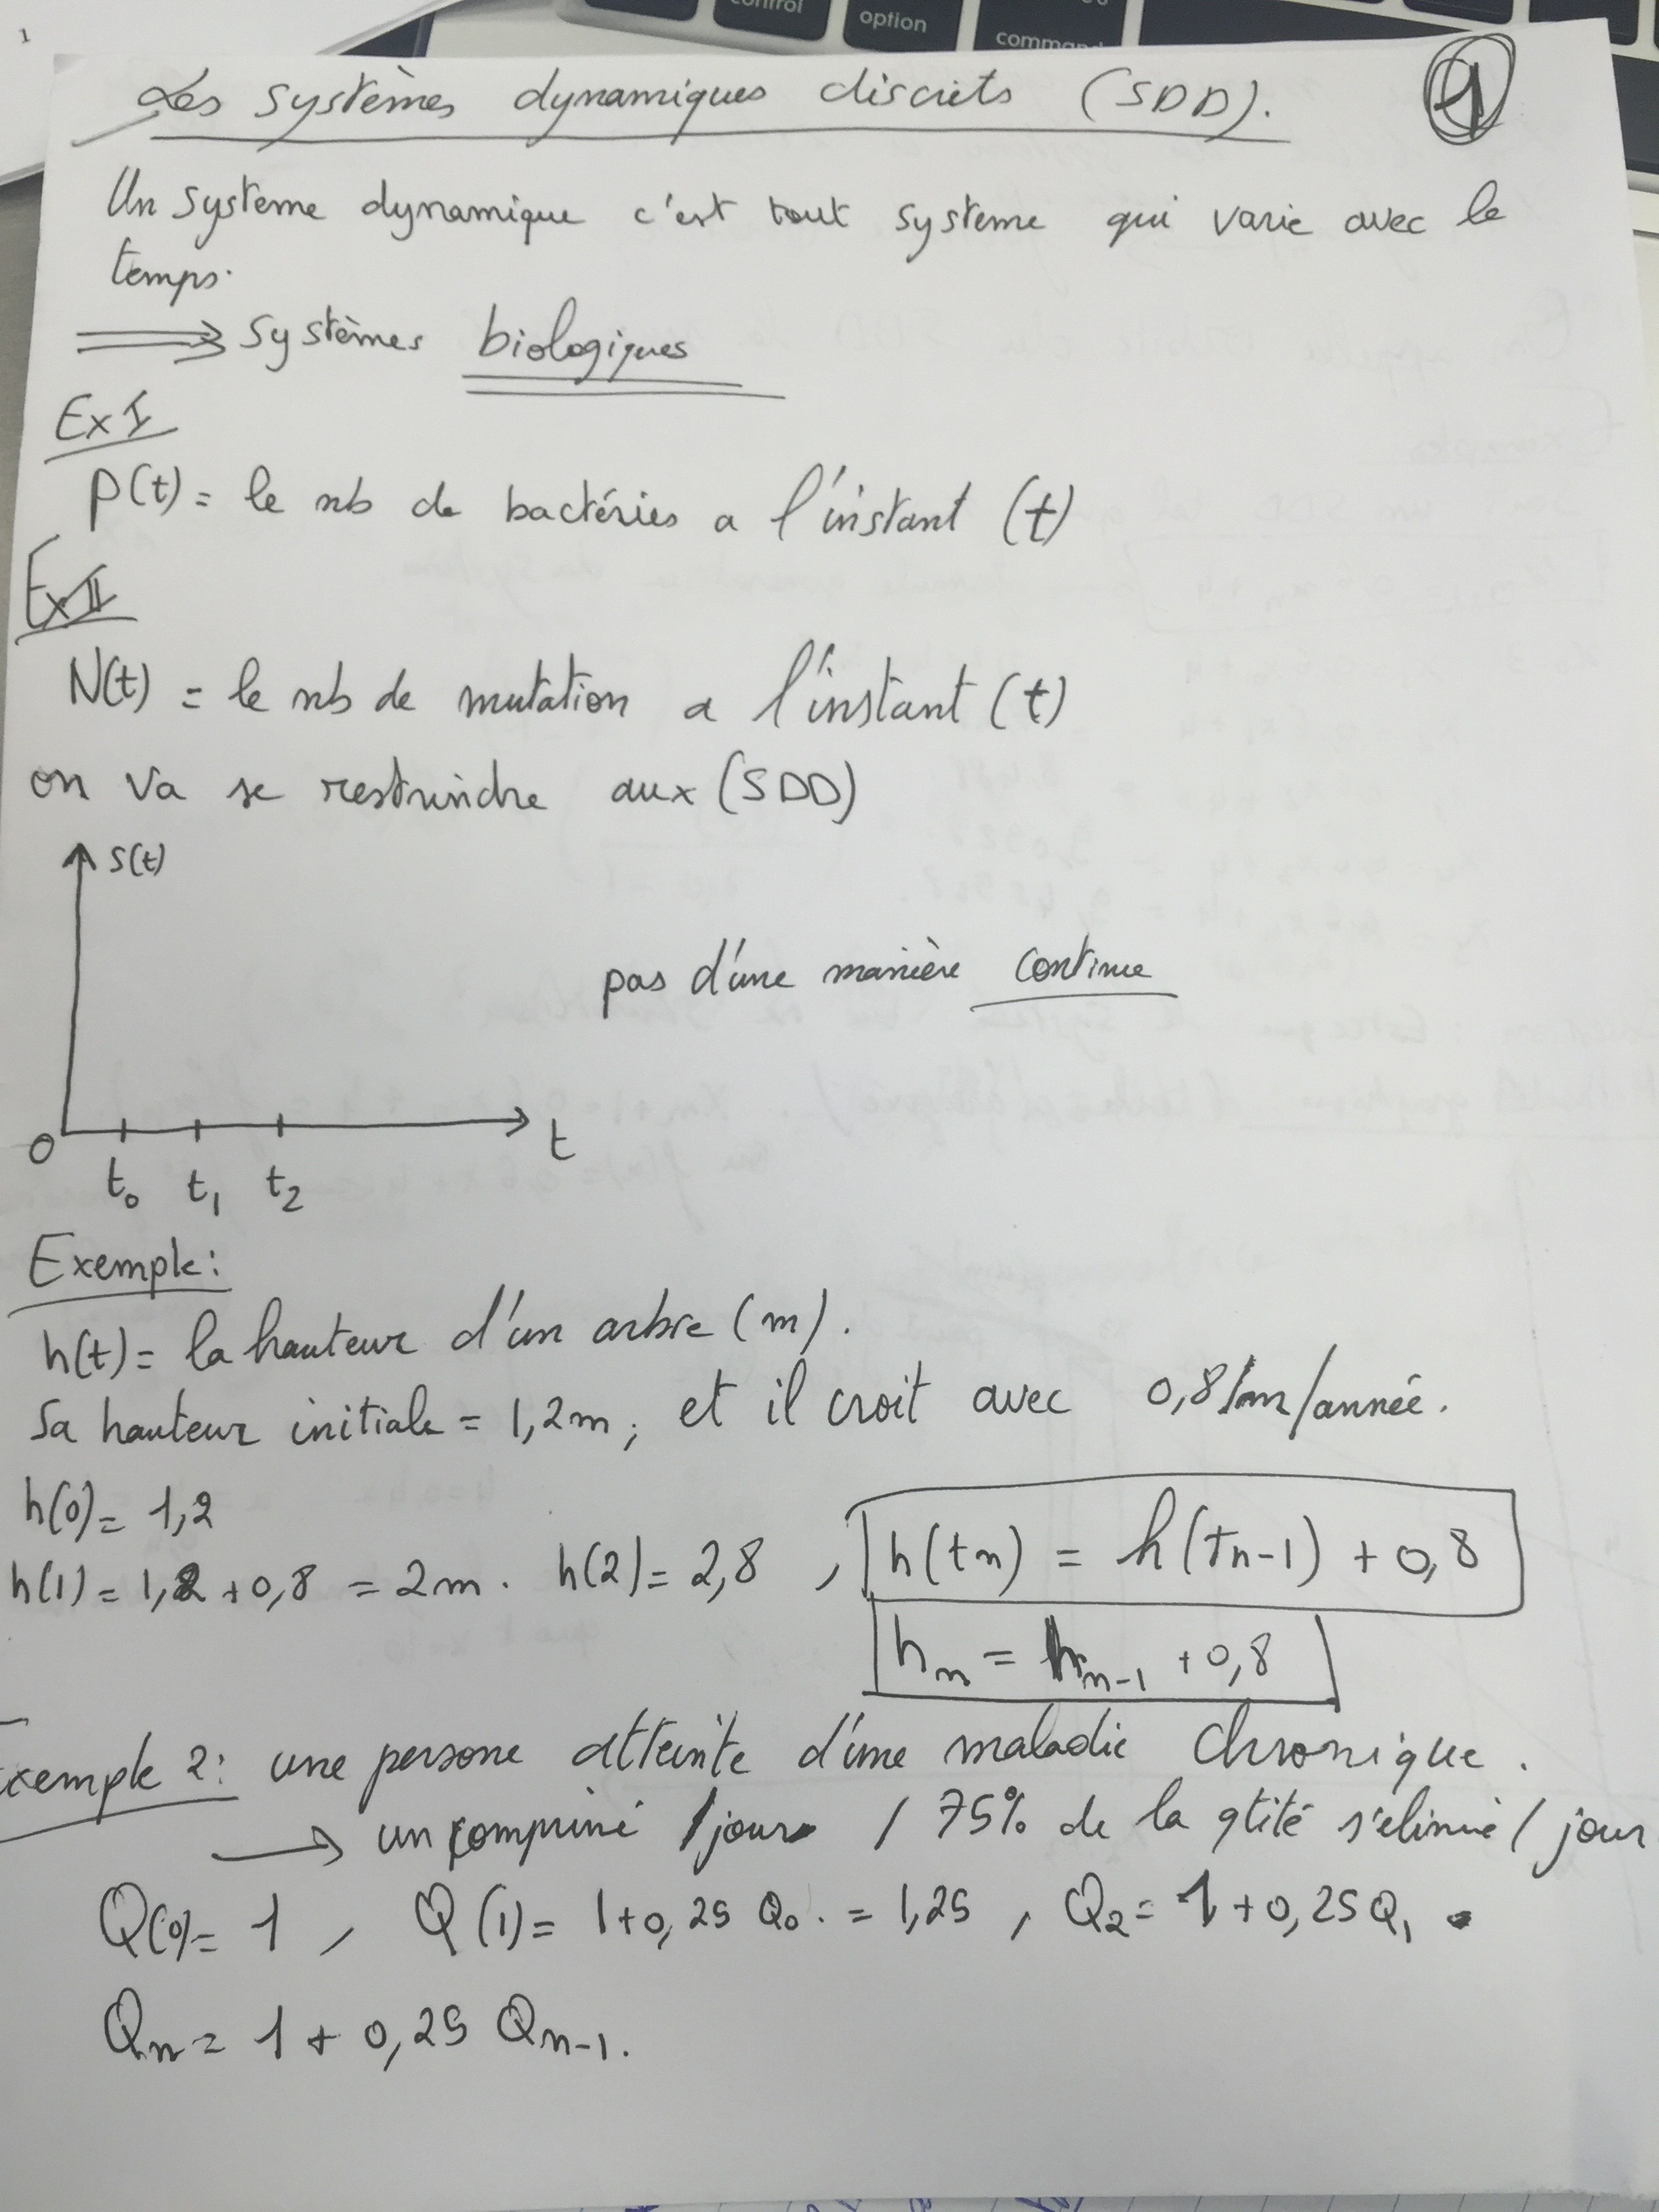 control
option
command
1
Les systèmes dynamiques discrets (SDD).
1
Un système dynamique c'est tout système qui varie avec le
temps.
⟹ systèmes biologiques
Ex I
P(t) = le nb de bactéries a l'instant (t)
Ex II
N(t) = le nb de mutation a l'instant (t)
on va se restreindre aux (SDD)
S(t)
pas d'une manière continue
O t
t₀ t₁ t₂
Exemple:
h(t) = la hauteur d'un arbre (m).
Sa hauteur initiale = 1,2m, et il croit avec 0,8 m/année.
h(0) = 1,2
h(1) = 1,2 + 0,8 = 2m. h(2) = 2,8 , h(tn) = h(tn-1) + 0,8
hₙ = hₙ₋₁ + 0,8
Exemple 2: une persone atteinte d'une maladie chronique.
→ un comprimé /jour / 75% de la qtité s'élimine / jour
Q(0) = 1 , Q(1) = 1+0,25 Q₀. = 1,25 , Q₂ = 1+0,25Q₁
Qₙ = 1 + 0,25 Qₙ₋₁.